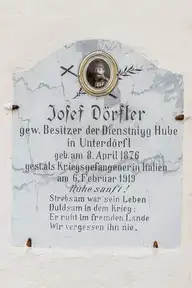 Josef Dörfler
gew. Besitzer der Dienstnigg Hube
in Unterdörfl
geb. am 8. April 1876
gest. als Kriegsgefangener in Italien
am 6. Februar 1919
Ruhe sanft!
Strebsam war sein Leben
Duldsam in dem Krieg;
Er ruht im fremden Lande
Wir vergessen ihn nie.